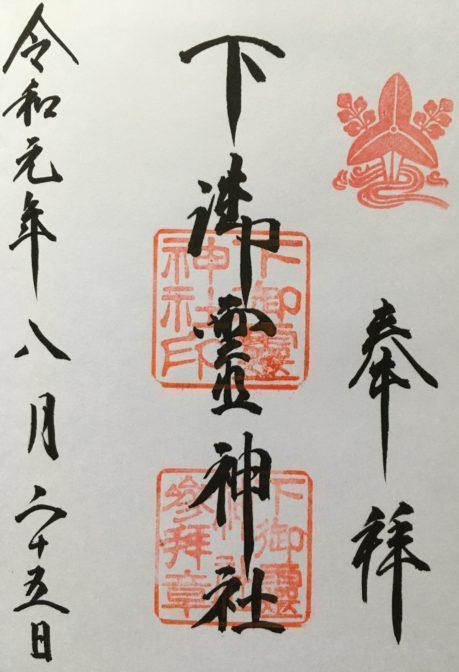 奉拝
下御霊神社
令和元年八月二十五日
下御靈
神社印
下御靈
神社
參拜章